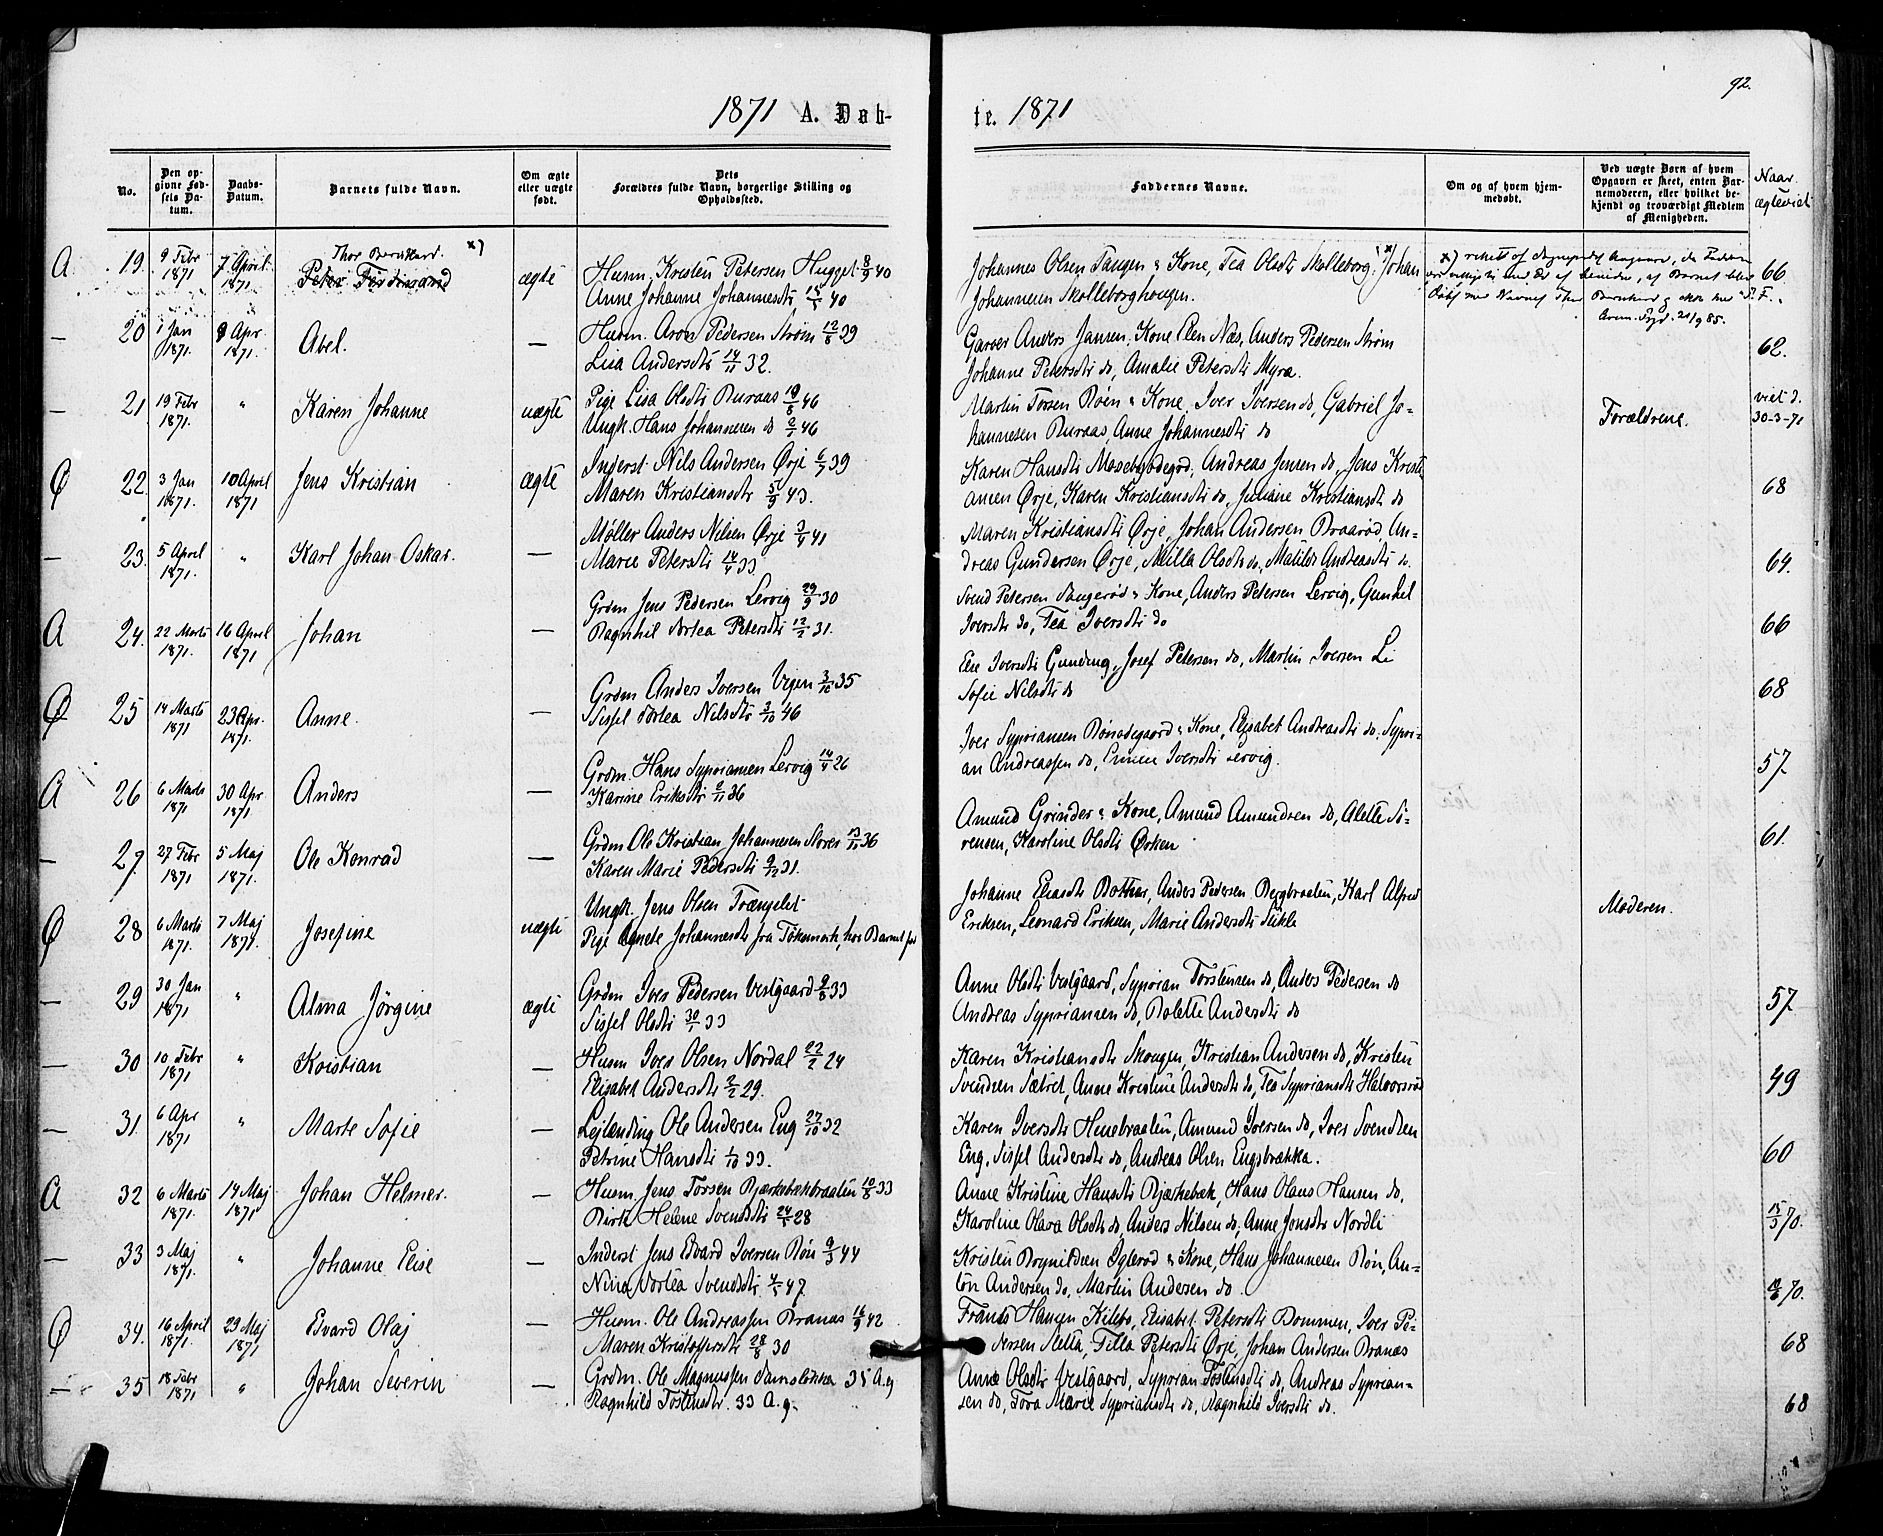 92.
1871 A. Døb-
te. 1871
No.
Den op-
givne Fød-
sels Da-
tum.
Daabs-
Datum.
Barnets fulde Navn.
Om ægte
eller uægte
født.
Dets
Forældres fulde Navn, borgerlige Stilling og
Opholdssted.
Faddernes Navne.
Om og af hvem hjem-
medøbt.
Ved uægte Børn af hvem
Opgaven er skeet, enten Bar-
nemoderen, eller hvilket be-
kjendt og troværdigt Medlem
af Menigheden.
Naar
ægteviet
A 19. 9 Febr 1871 7 April 1871 Thor Bernhard x)
Peter Ferdinand ægte Husm. Kristen Petersen Hugget 8/9 40
Anne Johanne Johannesdtr 15/5 40
Johannes Olsen Tangen & Kone, Tea Olsdtr Skolleborg, x) Johan
Johannesen Skolleborghougen. 66
— 20 1 Jan 1871. 9 Apr 1871. Abel. — Husm. Aron Pedersen Strøm 12/8 39
Lisa Andersdtr 14/11 32.
Garver Anders Jansen, Kone Elen Næs, Anders Pedersen Strøm
Johanne Petersdtr do, Amalie Petersdtr Myra. 62.
— 21 19 Febr 1871. " Karen Johanne uægte Pige Lisa Olsdtr Buraas 19/8 46
Ungk. Hans Johannesen do 2/1 46
Martin Torsen Røen & Kone, Iver Iversen do, Gabriel Jo-
hannesen Buraas, Anne Johannesdtr do Forældrene. viet d.
30-3-71
Ø 22. 3 Jan 1871. 10 April 1871 Jens Kristian ægte Inderst. Nils Andersen Ørje 6/7 39
Maren Kristiansdtr 5/9 43.
Karen Hansdtr Mosebyødegrd, Andreas Jensen do, Jens Kristi-
ansen Ørje, Karen Kristiansdtr do, Juliane Kristiansdtr do 68
— 23. 5 April 1871. " Karl Johan Oskar. — Møller Anders Nilsen Ørje 3/4 41
Marie Petersdtr 14/4 33.
Maren Kristiansdtr Ørje, Johan Andersen Braarød, An-
dreas Gundersen Ørje, Milla Olsdtr do, Matilde Andreasdtr do. 64.
A 24. 22 Marts 1871. 16 April 1871 Johan — Grdm Jens Pedersen Lervig 29/9 30
Ragnhil Dortea Petersdtr 12/2 31.
Svend Petersen Taugerød & Kone, Anders Petersen Lervig, Gunhil
Iversdtr do, Tea Iversdtr do 66
Ø 25 14 Marts 1871 23 Apr. 1871. Anne. — Grdm Anders Iversen Vigen 3/10 35
Sissel Dortea Nilsdtr 3/10 46
Else Iversdtr Gunding, Josef Petersen do, Martin Iversen Li
Sofie Nilsdtr do 68
A 26 6 Marts 1871 30 Apr 1871. Anders — Grdm. Hans Syprianssen Lervig 14/4 26
Karine Eriksdtr 2/11 36
Iver Sypriansen Rønødegaard & Kone, Elisabet Andreasdtr do. Sypri-
an Andreassen do, Emilie Iversdtr Lervig. 57.
— 27. 27 Febr 1871 5 Maj 1871. Ole Konrad — Grdm Ole Kristian Johannesen Storer 13/11 36
Karen Marie Pedersdtr 9/12 31.
Amund Grinder & Kone, Amund Amundsen do, Alette Sø-
rensen, Karoline Olsdtr Ørken 61.
Ø 28 6 Marts 1871. 7 Maj 1871. Josefine uægte Ungk. Jens Olsen Trængslet
Pige Agnete Johannesdtr fra Tøksmark, hos Barnet før
Johanne Eliasdtr Bothner, Anders Pedersen Bergbraaten, Karl Alfred
Eriksen, Leonard Eriksen, Marie Andersdtr Stikle Moderen.
— 29 30 Jan 1871 " Alma Jörgine ægte Grdm Iver Pedersen Vestgaard 9/8 33
Sissel Olsdtr 30/1 33
Anne Olsdtr Vestgaard, Syprian Torstensen do, Anders Pedersen do
Andreas Sypriansen do, Bolette Andersdtr do 57.
— 30 10 Febr 1871 " Kristian — Husm Iver Olsen Nordal 22/2 24
Elisabet Andersdtr 2/2 29.
Karen Kristiansdtr Skougen, Kristian Andersen do, Kristen
Svendsen Sætret, Anne Kristine Andersdtr do, Tea Sypriansdtr Halvorsrød 49
— 31. 6 Apr 1871 " Marte Sofie — Lejlending Ole Andersen Eng 27/10 32
Petrine Hansdtr 1/10 33.
Karen Iversdtr Huebraaten, Amund Iversen do, Iver Svendsen
Eng, Sissel Andersdtr do, Andreas Olsen Engsbrækka. 60
A 32 6 Marts 1871. 14 Maj 1871 Johan Helmer. — Husm. Jens Torsen Bjærkebækbraaten 10/8 33
Birte Helene Svendsdtr 24/5 28
Anne Kristine Hansdtr Bjærkebæk, Hans Olaus Hansen do.
Karoline Olava Olsdtr do, Anders Nilsen do, Anne Jonsdtr Nordli 15/3 70.
— 33 3 Maj 1871. " Johanne Elise — Inderst Jens Edvard Iversen Røn 9/3 44
Nina Dortea Svendsdtr 4/5 47.
Kristen Brynildsen Iglerød & Kone, Hans Johannesen Røn, An-
ton Andersen do, Martin Andersen do. 70.
Ø 34. 16 April 1871. 29 Maj 1871 Edvard Olaj — Husm. Ole Andreassen Branæs 16/9 42
Maren Kristoffersdtr 28/8 30
Frants Hansen Kilebo, Elisabet Petersdtr Dommen, Iver Pe-
dersen Sletta, Tilla Petersdtr Ørje, Johan Andersen Branæs 68
— 35 18 Febr 1871 " Johan Severin — Grdm. Ole Magnussen Damsløkka 35 A.g
Ragnhild Tostensdtr. 33 A.g.
Anne Olsdtr Vestgaard, Syprian Tostensdtr do, Andreas Syprian-
sen do, Tora Marie Sypriansdtr do, Ragnhild Iversdtr do. 68